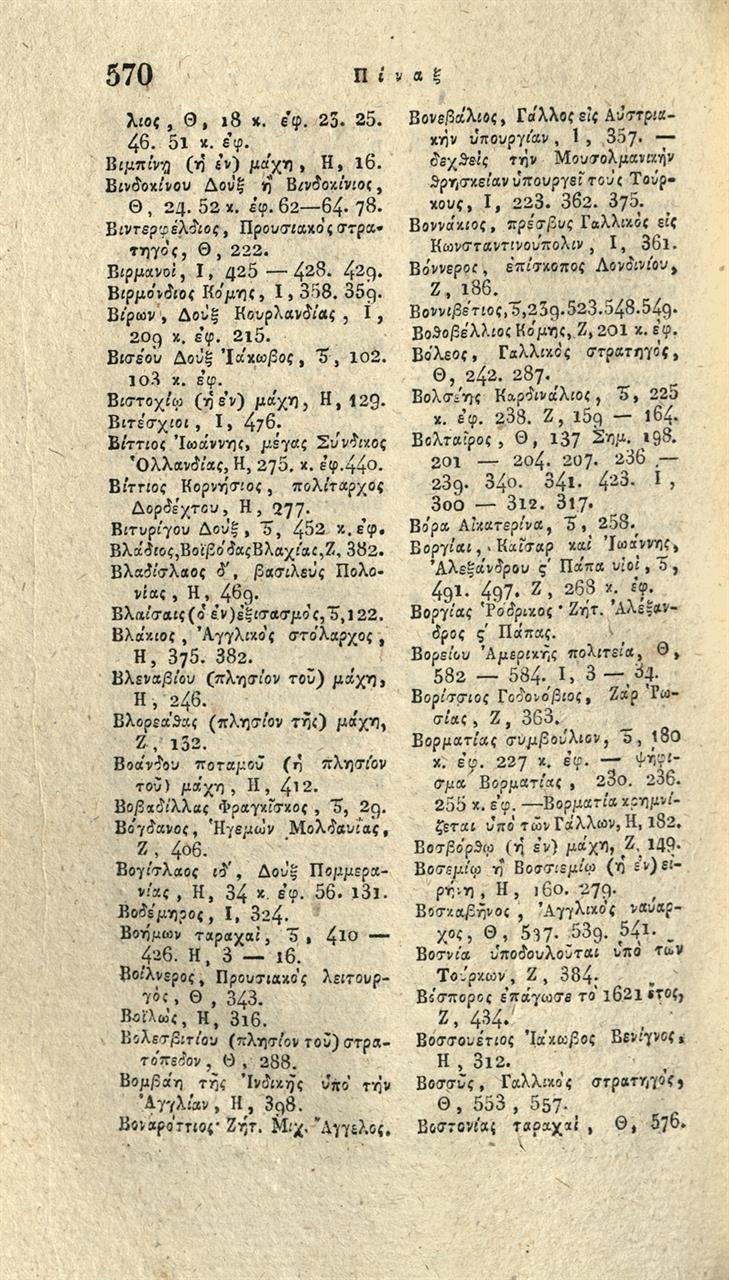 570
Πίναξ
λιος, Θ, 18 κ. ἐφ. 23. 25.
46. 51 κ. ἐφ.
Βιμπίνῃ (ἡ ἐν) μάχη, Η, 16.
Βινδοκίνου Δοὺξ ἢ Βινδοκίνιος,
Θ, 24. 52 κ. ἐφ. 62—64. 78.
Βιντερφέλδιος, Προυσιακὸς στρα-
τηγός, Θ, 222.
Βιρμανοί, Ι, 425 — 428. 429.
Βιρμόνδιος Κόμης, Ι, 358. 359.
Βίρων, Δοὺξ Κουρλανδίας, Ι,
209 κ. ἐφ. 215.
Βισέου Δοὺξ Ἰάκωβος, Ϛ, 102.
103 κ. ἐφ.
Βιστοχίῳ (ἡ ἐν) μάχη, Η, 129.
Βιτέσχιοι, Ι, 476.
Βίττιος Ἰωάννης, μέγας Σύνδικος
Ὁλλανδίας, Η, 275. κ. ἐφ. 440.
Βίττιος Κορνήσιος, πολίταρχος
Δορδέχτου, Η, 277.
Βιτυρίγου Δοὺξ, Ϛ, 452 κ. ἐφ.
Βλάδιος, Βοϊβόδας Βλαχίας, Ζ, 382.
Βλαδίσλαος δ΄, βασιλεὺς Πολο-
νίας, Η, 469.
Βλαίσαις (ὁ ἐν) ἐξισασμὸς, Ϛ, 122.
Βλάκιος, Ἀγγλικὸς στόλαρχος,
Η, 375. 382.
Βλεναβίου (πλησίον τοῦ) μάχη,
Η, 246.
Βλορεάθας (πλησίον τῆς) μάχη,
Ζ, 132.
Βοάνδου ποταμοῦ (ἡ πλησίον
τοῦ) μάχη, Η, 412.
Βοβαδίλλας Φραγκῖσκος, Ϛ, 29.
Βόγδανος, Ἡγεμὼν Μολδαυίας,
Ζ, 406.
Βογίσλαος ιδ΄, Δοὺξ Πομμερα-
νίας, Η, 34 κ. ἐφ. 56. 131.
Βοδέμηρος, Ι, 324.
Βοήμων ταραχαὶ, Ϛ, 410 —
426. Η, 3 — 16.
Βοΐλνερος, Προυσιακὸς λειτουρ-
γὸς, Θ, 343.
Βοῖλὼς, Η, 316.
Βολεσβιτίου (πλησίον τοῦ) στρα-
τόπεδον, Θ, 288.
Βομβάη τῆς Ἰνδικῆς ὑπὸ τὴν
Ἀγγλίαν, Η, 398.
Βοναρόττιος· Ζήτ. Μιχ. Ἄγγελος.
Βονεβάλιος, Γάλλος εἰς Αὐστρια-
κὴν ὑπουργίαν, Ι, 357. —
δεχθεὶς τὴν Μουσολμανικὴν
θρησκείαν ὑπουργεῖ τοὺς Τούρ-
κους, Ι, 223. 362. 375.
Βοννάκιος, πρέσβυς Γαλλικὸς εἰς
Κωνσταντινούπολιν, Ι, 361.
Βόννερος, ἐπίσκοπος Λονδινίου,
Ζ, 186.
Βοννιβέτιος, Ϛ, 239. 523. 548. 549.
Βοθοβέλλιος Κόμης, Ζ, 201 κ. ἐφ.
Βόλεος, Γαλλικὸς στρατηγὸς,
Θ, 242. 287.
Βολσέης Καρδινάλιος, Ϛ, 225
κ. ἐφ. 238. Ζ, 159 — 164.
Βολταῖρος, Θ, 137 Σημ. 198.
201 — 204. 207. 236 —
239. 340. 341. 423. Ι,
300 — 312. 317.
Βόρα Αἰκατερίνα, Ϛ, 258.
Βοργίαι, Καῖσαρ καὶ Ἰωάννης,
Ἀλεξάνδρου ς΄ Πάπα υἱοὶ, Ϛ,
491. 497. Ζ, 268 κ. ἐφ.
Βοργίας Ῥόδρικος· Ζήτ. Ἀλέξαν-
δρος ς΄ Πάπας.
Βορείου Ἀμερικῆς πολιτεία, Θ,
582 — 584. Ι, 3 — 34.
Βορίσσιος Γοδονόβιος, Ζὰρ Ῥω-
σίας, Ζ, 363.
Βορματίας συμβούλιον, Ϛ, 180
κ. ἐφ. 227 κ. ἐφ. — ψήφι-
σμα Βορματίας, 230. 236.
255 κ. ἐφ. — Βορματία κρημνί-
ζεται ὑπὸ τῶν Γάλλων, Η, 182.
Βοσβόρθῳ (ἡ ἐν) μάχη, Ζ, 149.
Βοσεμίῳ ἢ Βοσσιεμίῳ (ἡ ἐν) εἰ-
ρήνη, Η, 160. 279.
Βοσκαβῆνος, Ἀγγλικὸς ναύαρ-
χος, Θ, 537. 539. 541.
Βοσνία ὑποδουλοῦται ὑπὸ τῶν
Τούρκων, Ζ, 384.
Βόσπορος ἐπάγωσε τὸ 1621 ἔτος,
Ζ, 434.
Βοσσουέτιος Ἰάκωβος Βενίγνος,
Η, 312.
Βοσσῦς, Γαλλικὸς στρατηγὸς,
Θ, 553, 557.
Βοστονίας ταραχαὶ, Θ, 576.